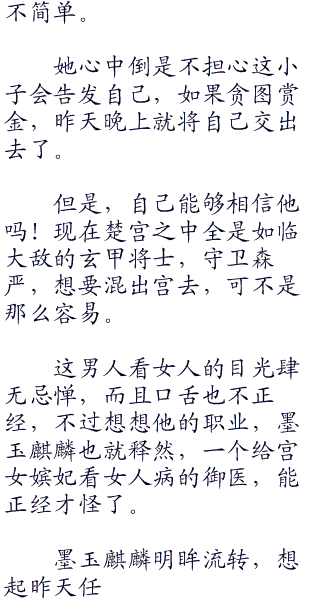 不简单。
她心中倒是不担心这小
子会告发自己，如果贪图赏
金，昨天晚上就将自己交出
去了。
但是，自己能够相信他
吗！现在楚宫之中全是如临
大敌的玄甲将士，守卫森
严，想要混出宫去，可不是
那么容易。
这男人看女人的目光肆
无忌惮，而且口舌也不正
经，不过想想他的职业，墨
玉麒麟也就释然，一个给宫
女嫔妃看女人病的御医，能
正经才怪了。
墨玉麒麟明眸流转，想
起昨天任